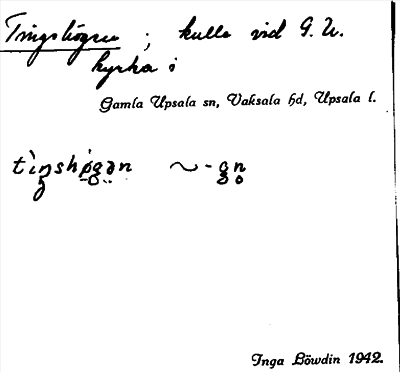 Tingshögen ; kulle vid G. U.
kyrka i
Gamla Upsala sn, Vaksala hd, Upsala l.
tìŋshø̀gən ~ -gn̥
Inga Löwdin 1942.